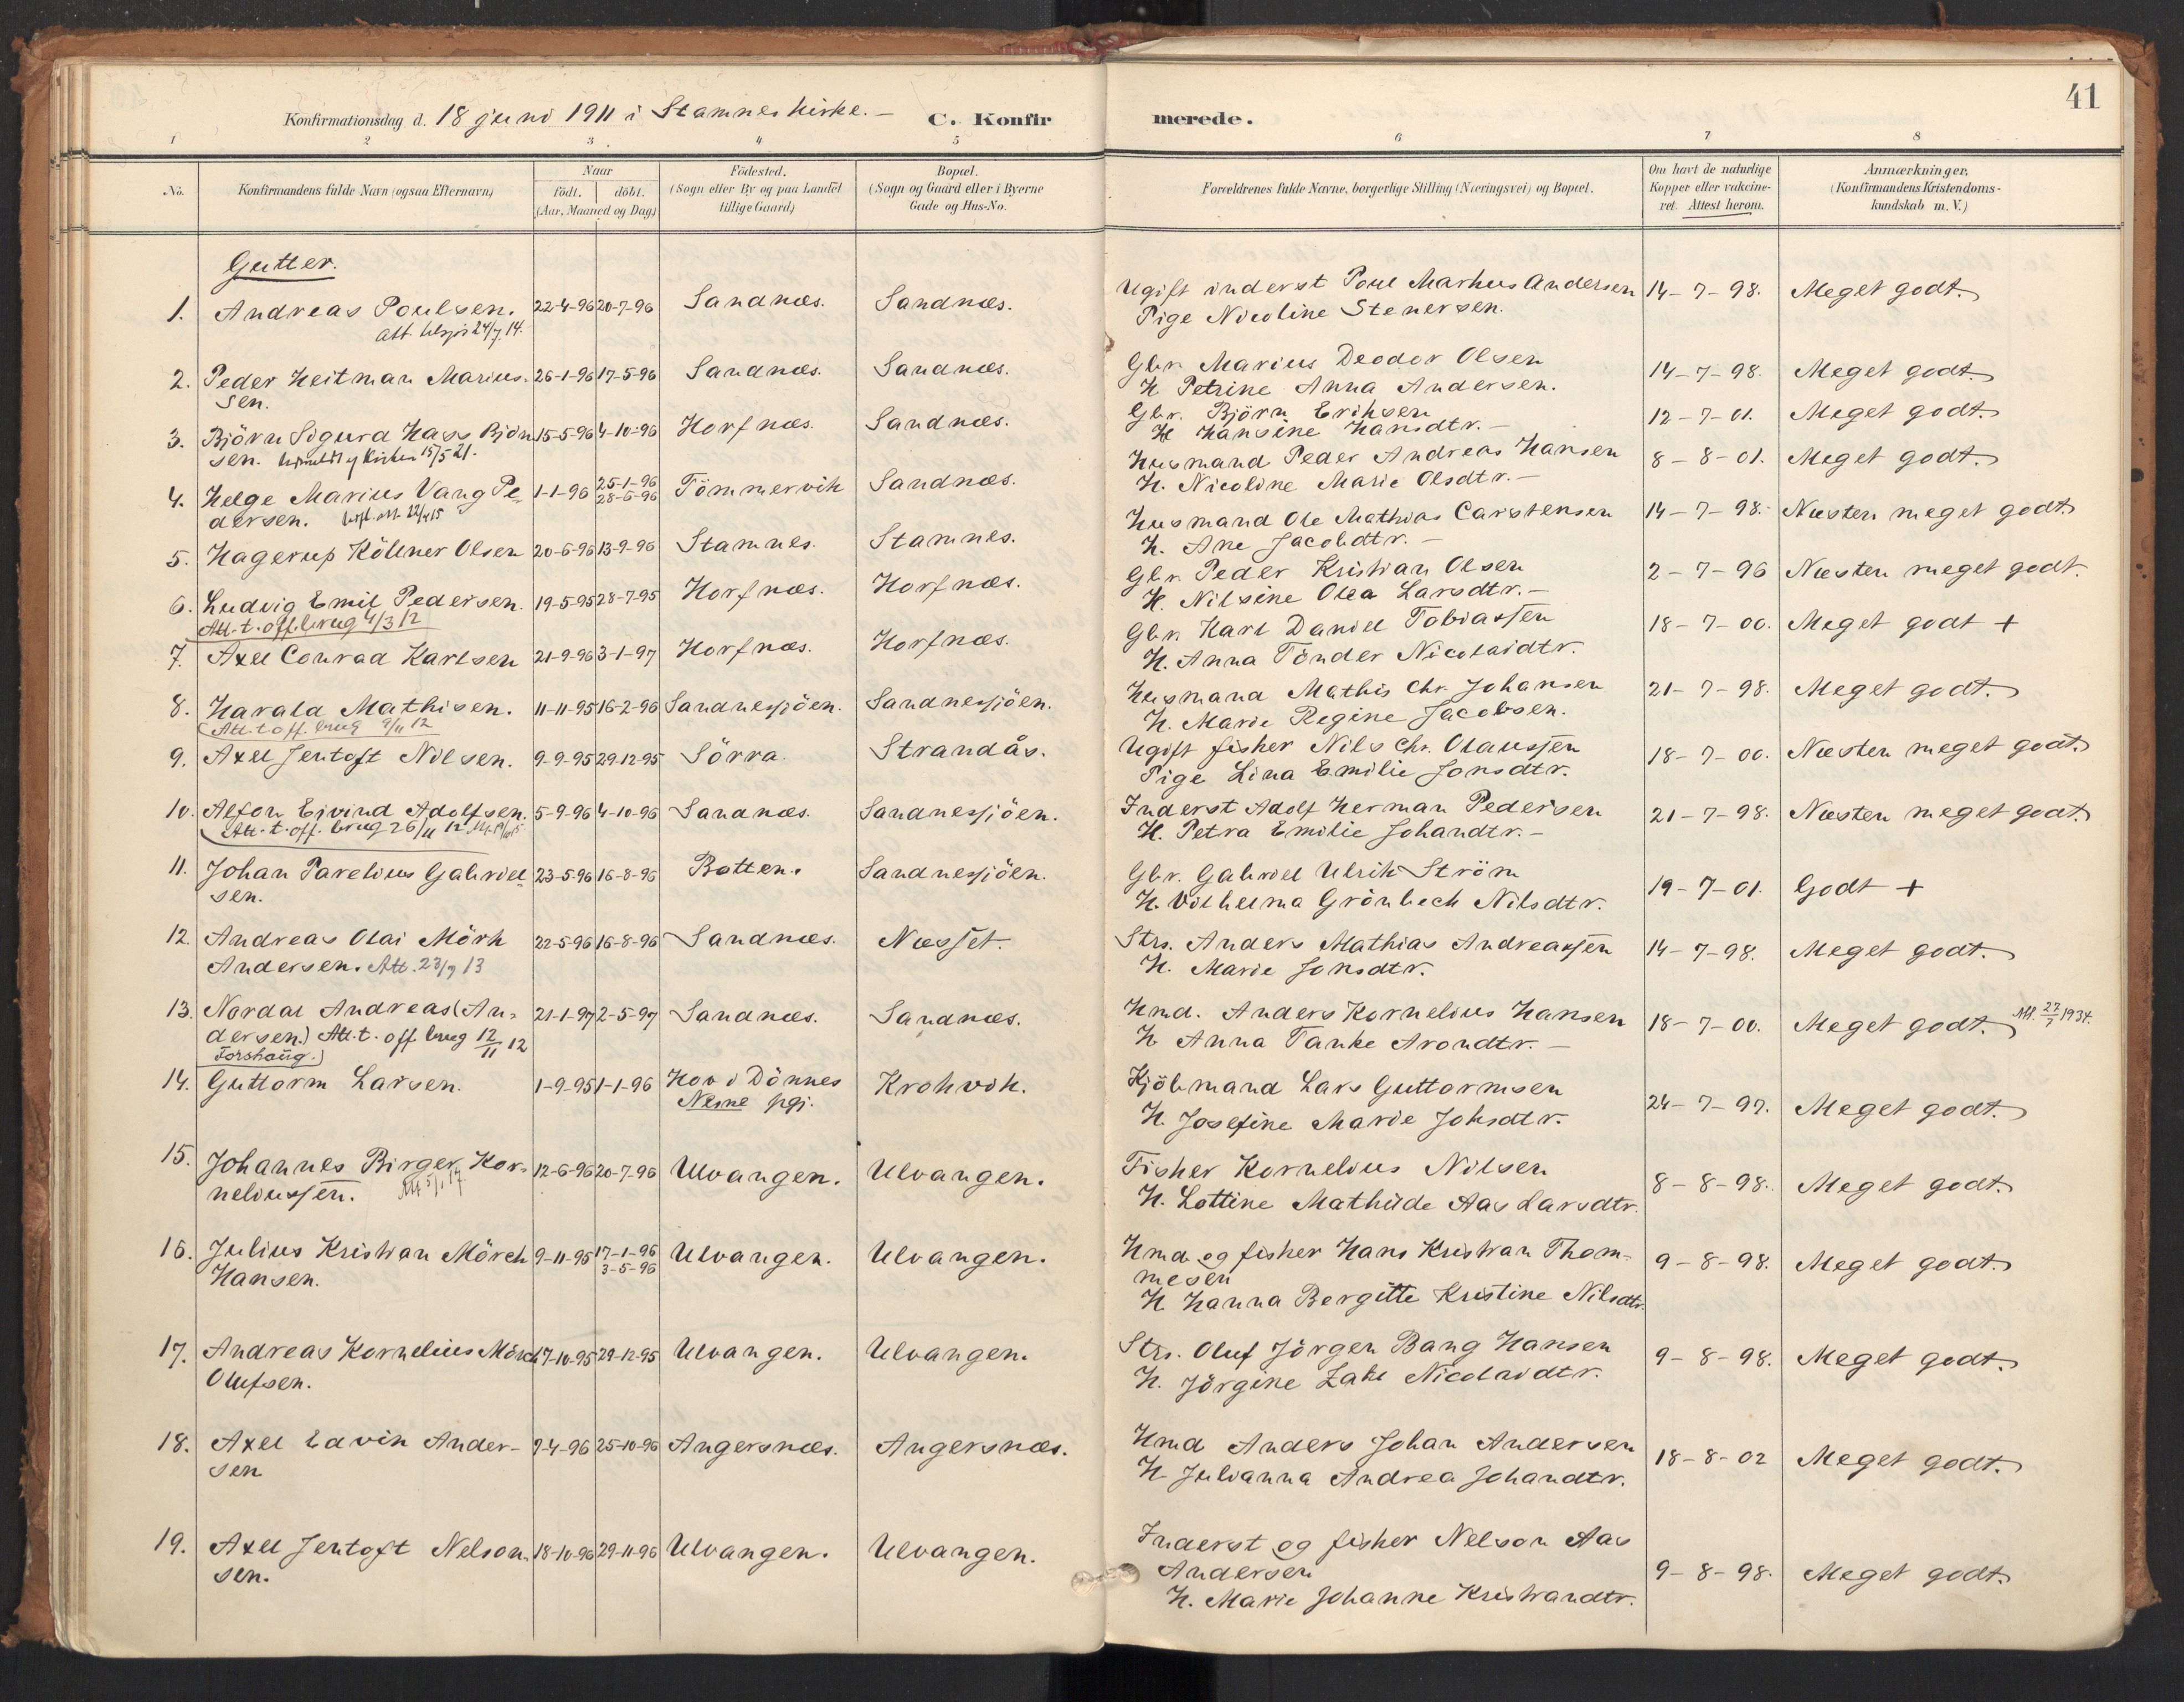 41
Konfirmationsdag d. 18 juni 1911 i Stamnes kirke. — C. Konfirmerede.
1 2 3 4 5 6 7 8
No.
Konfirmandens fulde Navn (ogsaa Efternavn)
Naar
födt. döbt.
(Aar, Maaned og Dag)
Födested.
(Sogn eller By og paa Landet
tillige Gaard)
Bopæl.
(Sogn og Gaard eller i Byerne
Gade og Hus-No.
Forældrenes fulde Navne, borgerlige Stilling (Næringsvei) og Bopæl.
Om havt de naturlige
Kopper eller vakcine-
ret. Attest herom.
Anmærkninger,
(Konfirmandens Kristendoms-
kundskab m. V.)
Gutter.
1. Andreas Poulsen. 22-4-96 20-7-96 Sandnæs. Sandnæs. Ugift inderst Poul Markus Andersen 14-7-98. Meget godt.
att. 24/7 14. Pige Nicoline Stenersen.
2. Peder Heitman Marius- 26-1-96 17-5-96 Sandnæs. Sandnæs. Gbr. Marius Deodor Olsen 14-7-98. Meget godt.
sen. H. Petrine Anna Andersen.
3. Björn Sigurd Hass Björn 15-5-96 4-10-96 Horfnæs. Sandnæs. Gbr. Björn Eriksen 12-7-01. Meget godt.
sen. 15/5 21. H. Hansine Hansdtr. —
4. Helge Marius Vang Pe- 1-1-96 25-1-96 28-6-96 Tömmervik Sandnæs. Husmand Peder Andreas Hansen 8-8-01. Meget godt.
dersen. att. 22/4 15 H. Nicoline Marie Olsdtr. —
5. Hagerup Köllner Olsen 20-6-96 13-9-96 Stamnes. Stamnes. Husmand Ole Mathias Carstensen 14-7-98. Næsten meget godt.
H. Ane Jacobdtr. —
6. Ludvig Emil Pedersen. 19-5-95 28-7-95 Horfnæs. Horfnæs. Gbr. Peder Kristian Olsen 2-7-96 Næsten meget godt.
Att. t. off. brug 4/3 12 H. Nilsine Olea Larsdtr. —
7. Axel Conrad Karlsen 21-9-96 3-1-97 Horfnæs. Horfnæs. Gbr. Karl Daniel Tobiassen 18-7-00. Meget godt +
H. Anna Tönder Nicolaidtr.
8. Harald Mathisen. 11-11-95 16-2-96 Sandnessjöen. Sandnessjöen. Husmand Mathis Chr. Johansen 21-7-98. Meget godt.
Att. t. off. brug 9/11 12 H. Marie Regine Jacobsen.
9. Axel Jentoft Nilsen. 9-9-95 29-12-95 Sörra. Strandås. Ugift fisker Nils Chr. Olaussen 18-7-00. Næsten meget godt.
Pige Lina Emilie Jonsdtr.
10. Alfon Eivind Adolfsen. 5-9-96 4-10-96 Sandnæs. Sandnessjöen. Inderst Adolf Herman Pedersen 21-7-98. Næsten meget godt.
Att. t. off. brug 26/11 12 H. Petra Emilie Johandtr. —
11. Johan Parelius Gabriel- 23-5-96 16-8-96 Botten. Sandnessjöen. Gbr. Gabriel Ulrik Ström 19-7-01. Godt +
sen. H. Vilhelma Grönbech Nilsdtr.
12. Andreas Olai Mörk 22-5-96 16-8-96 Sandnæs. Næsset. Strs. Anders Mathias Andreassen 14-7-98. Meget godt.
Andersen. Att. 23/9 13 H. Marie Jonsdtr.
13. Nordal Andreas (An- 21-1-97 2-5-97 Sandnæs. Sandnæs. Hmd. Anders Kornelius Hansen 18-7-00. Meget godt. Att. 27/7 1934.
dersen.) Att. t. off. brug 12/11 12 H. Anna Tanke Arondtr. —
Forshaug.)
14. Guttorm Larsen. 1-9-95 1-1-96 Hov i Dönnes Krokvik. Kjöbmand Lars Guttormsen 24-7-97. Meget godt.
Nesne pgj. H. Josefine Marie Johsdtr.
15. Johannes Birger Kor- 12-6-96 20-7-96 Ulvangen. Ulvangen. Fisker Kornelius Nilsen 8-8-98. Meget godt.
neliussen. Att 5/1 17. H. Lottine Mathilde Aas Larsdtr.
16. Julius Kristian Mörch 9-11-95 17-1-96 3-5-96 Ulvangen. Ulvangen. Hmd og fisker Hans Kristian Thom- 9-8-98. Meget godt.
Hansen. mesen
H. Hanna Bergitte Kristine Nilsdtr.
17. Andreas Kornelius Mörch 17-10-95 29-12-95 Ulvangen. Ulvangen. Strs. Oluf Jörgen Bang Hansen 9-8-98. Meget godt.
Olufsen. H. Jörgine Lake Nicolaidtr.
18. Axel Edvin Ander- 9-4-96 25-10-96 Angersnæs. Angersnæs. Hmd Anders Johan Andersen 18-8-02 Meget godt.
sen H. Julianna Andrea Johandtr.
19. Axel Jentoft Nelson- 18-10-96 29-11-96 Ulvangen. Ulvangen. Inderst og fisker Nelson Aas 9-8-98. Meget godt.
sen. Andersen
H. Marie Johanne Kristiandtr.